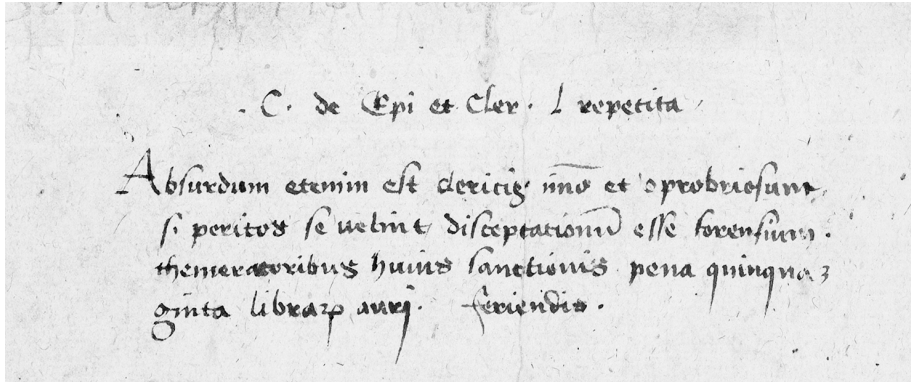 . C. de Epi et Cler. L repetita
Absurdum etenim est clericis imō et oprobriosum
si peritos se velint disceptationū esse forensium.
themeratoribus huius sanctionis pena quinqua
ginta libraꝝ aurj. feriendis.